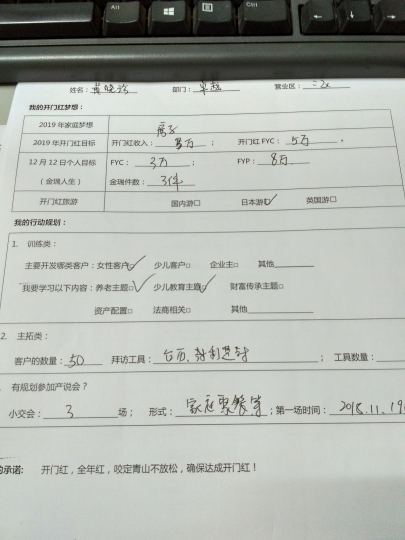 Alt
Alt
Ctrl
姓名：黄晓玲 部门：卓越 营业区：二区
我的开门红梦想：
2019年家庭梦想 房子
2019年开门红目标 开门红收入：3万； 开门红FYC：5万.
12月12日个人目标（金瑞人生） FYC：3万； FYP：8万
金瑞件数：3件
开门红旅游 国内游□ 日本游☑ 英国游□
我的行动规划：
1. 训练类：
主要开发哪类客户：女性客户☑ 少儿客户□ 企业主□ 其他
我要学习以下内容：养老主题☑ 少儿教育主题☑ 财富传承主题□
资产配置□ 法商相关□ 其他
2. 主拓类：
客户的数量：50 拜访工具：台历、 ； 工具数量：
有规划参加产说会？
小交会：3场； 形式：家庭聚餐等；第一场时间：2018.11.19
的承诺： 开门红，全年红，咬定青山不放松，确保达成开门红！